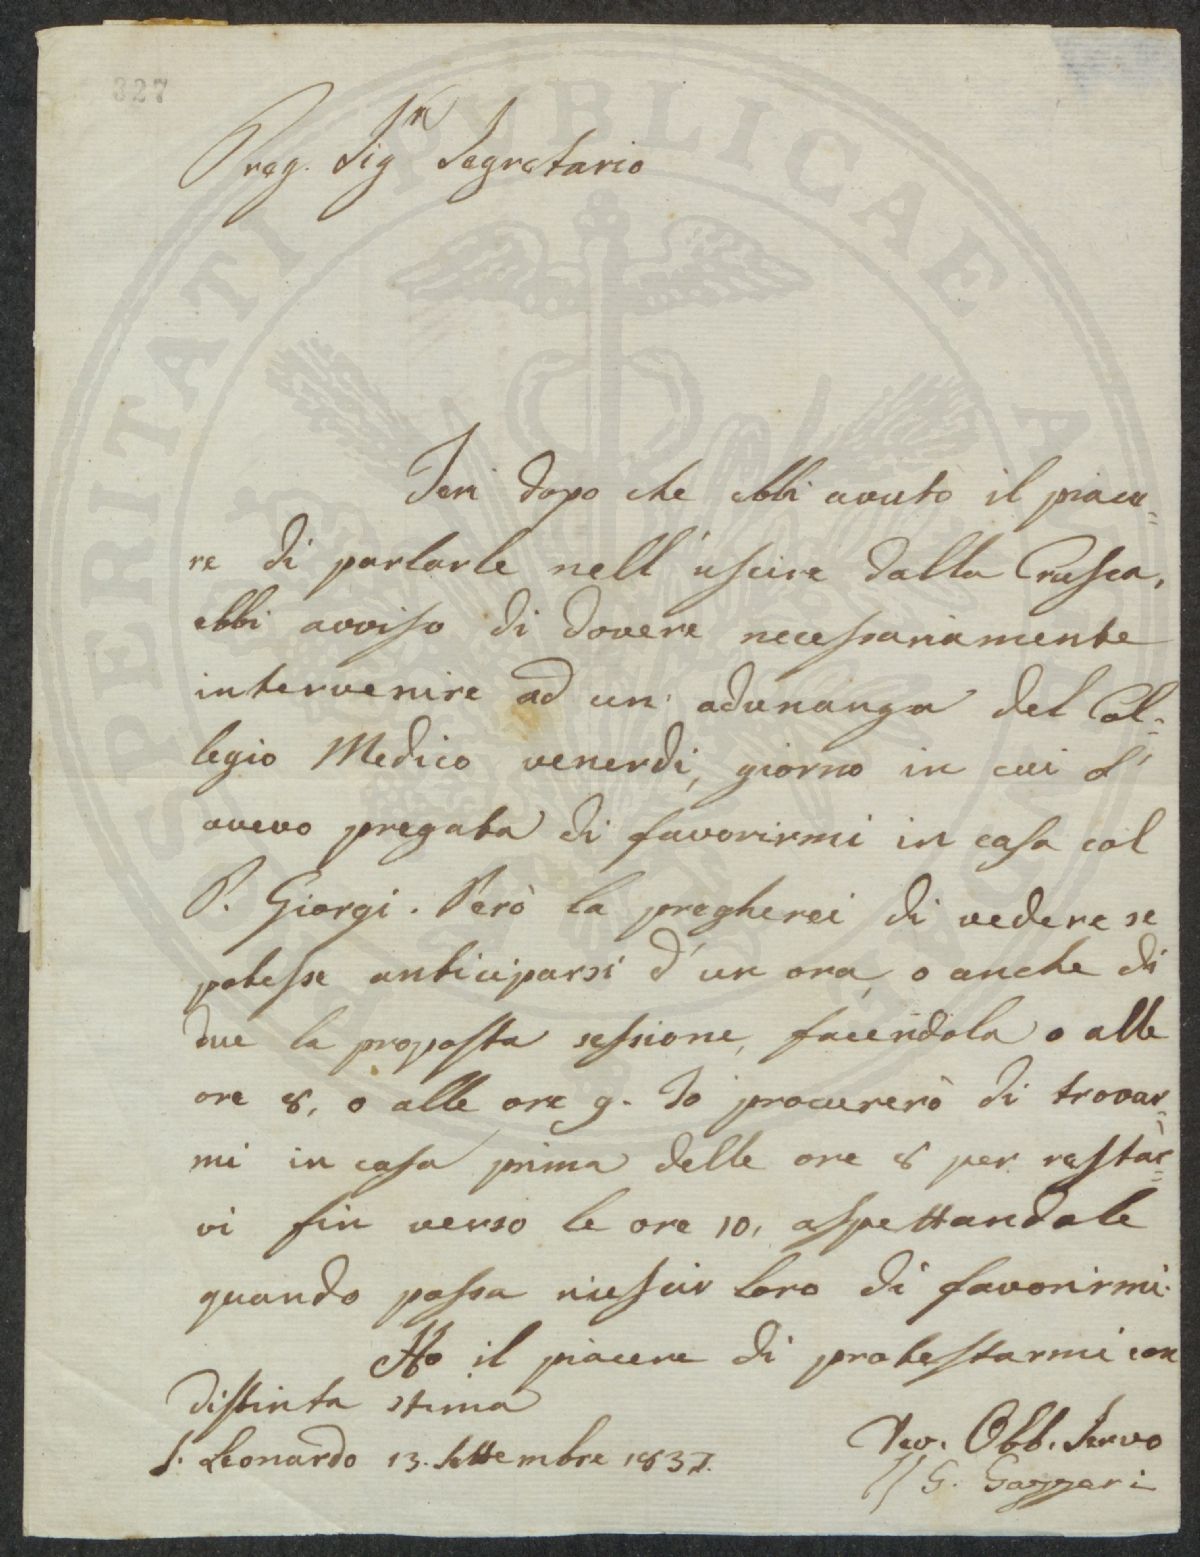 327
Preg. Sig.r Segretario
Ieri dopo che ebbi avuto il piace=
re di parlarle nell'uscire dalla Crusca,
ebbi avviso di dovere necessariamente
intervenire ad un' adunanza del Col=
legio Medico venerdì, giorno in cui l'
avevo pregata di favorirmi in casa col
P. Giorgi. Però la pregherei di vedere se
potesse anticiparsi d'un ora, o anche di
due la proposta sessione, facendola o alle
ore 8, o alle ore 9. Io procurerò di trovar=
mi in casa prima delle ore 8 per restar=
vi fin verso le ore 10, aspettandole
quando possa riuscir loro di favorirmi.
Ho il piacere di protestarmi con
distinta stima
S. Leonardo 13. Settembre 1837.
Dev. Obb. Servo
G. Gazzeri
PROSPERITATI PVBLICAE AVGENDAE